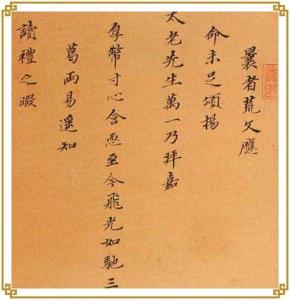 曩者荒文應
命未足頌揚
太老先生萬一乃拜嘉
厚幣寸心含恧至今飛光如馳三
葛兩易遙知
讀禮之暇